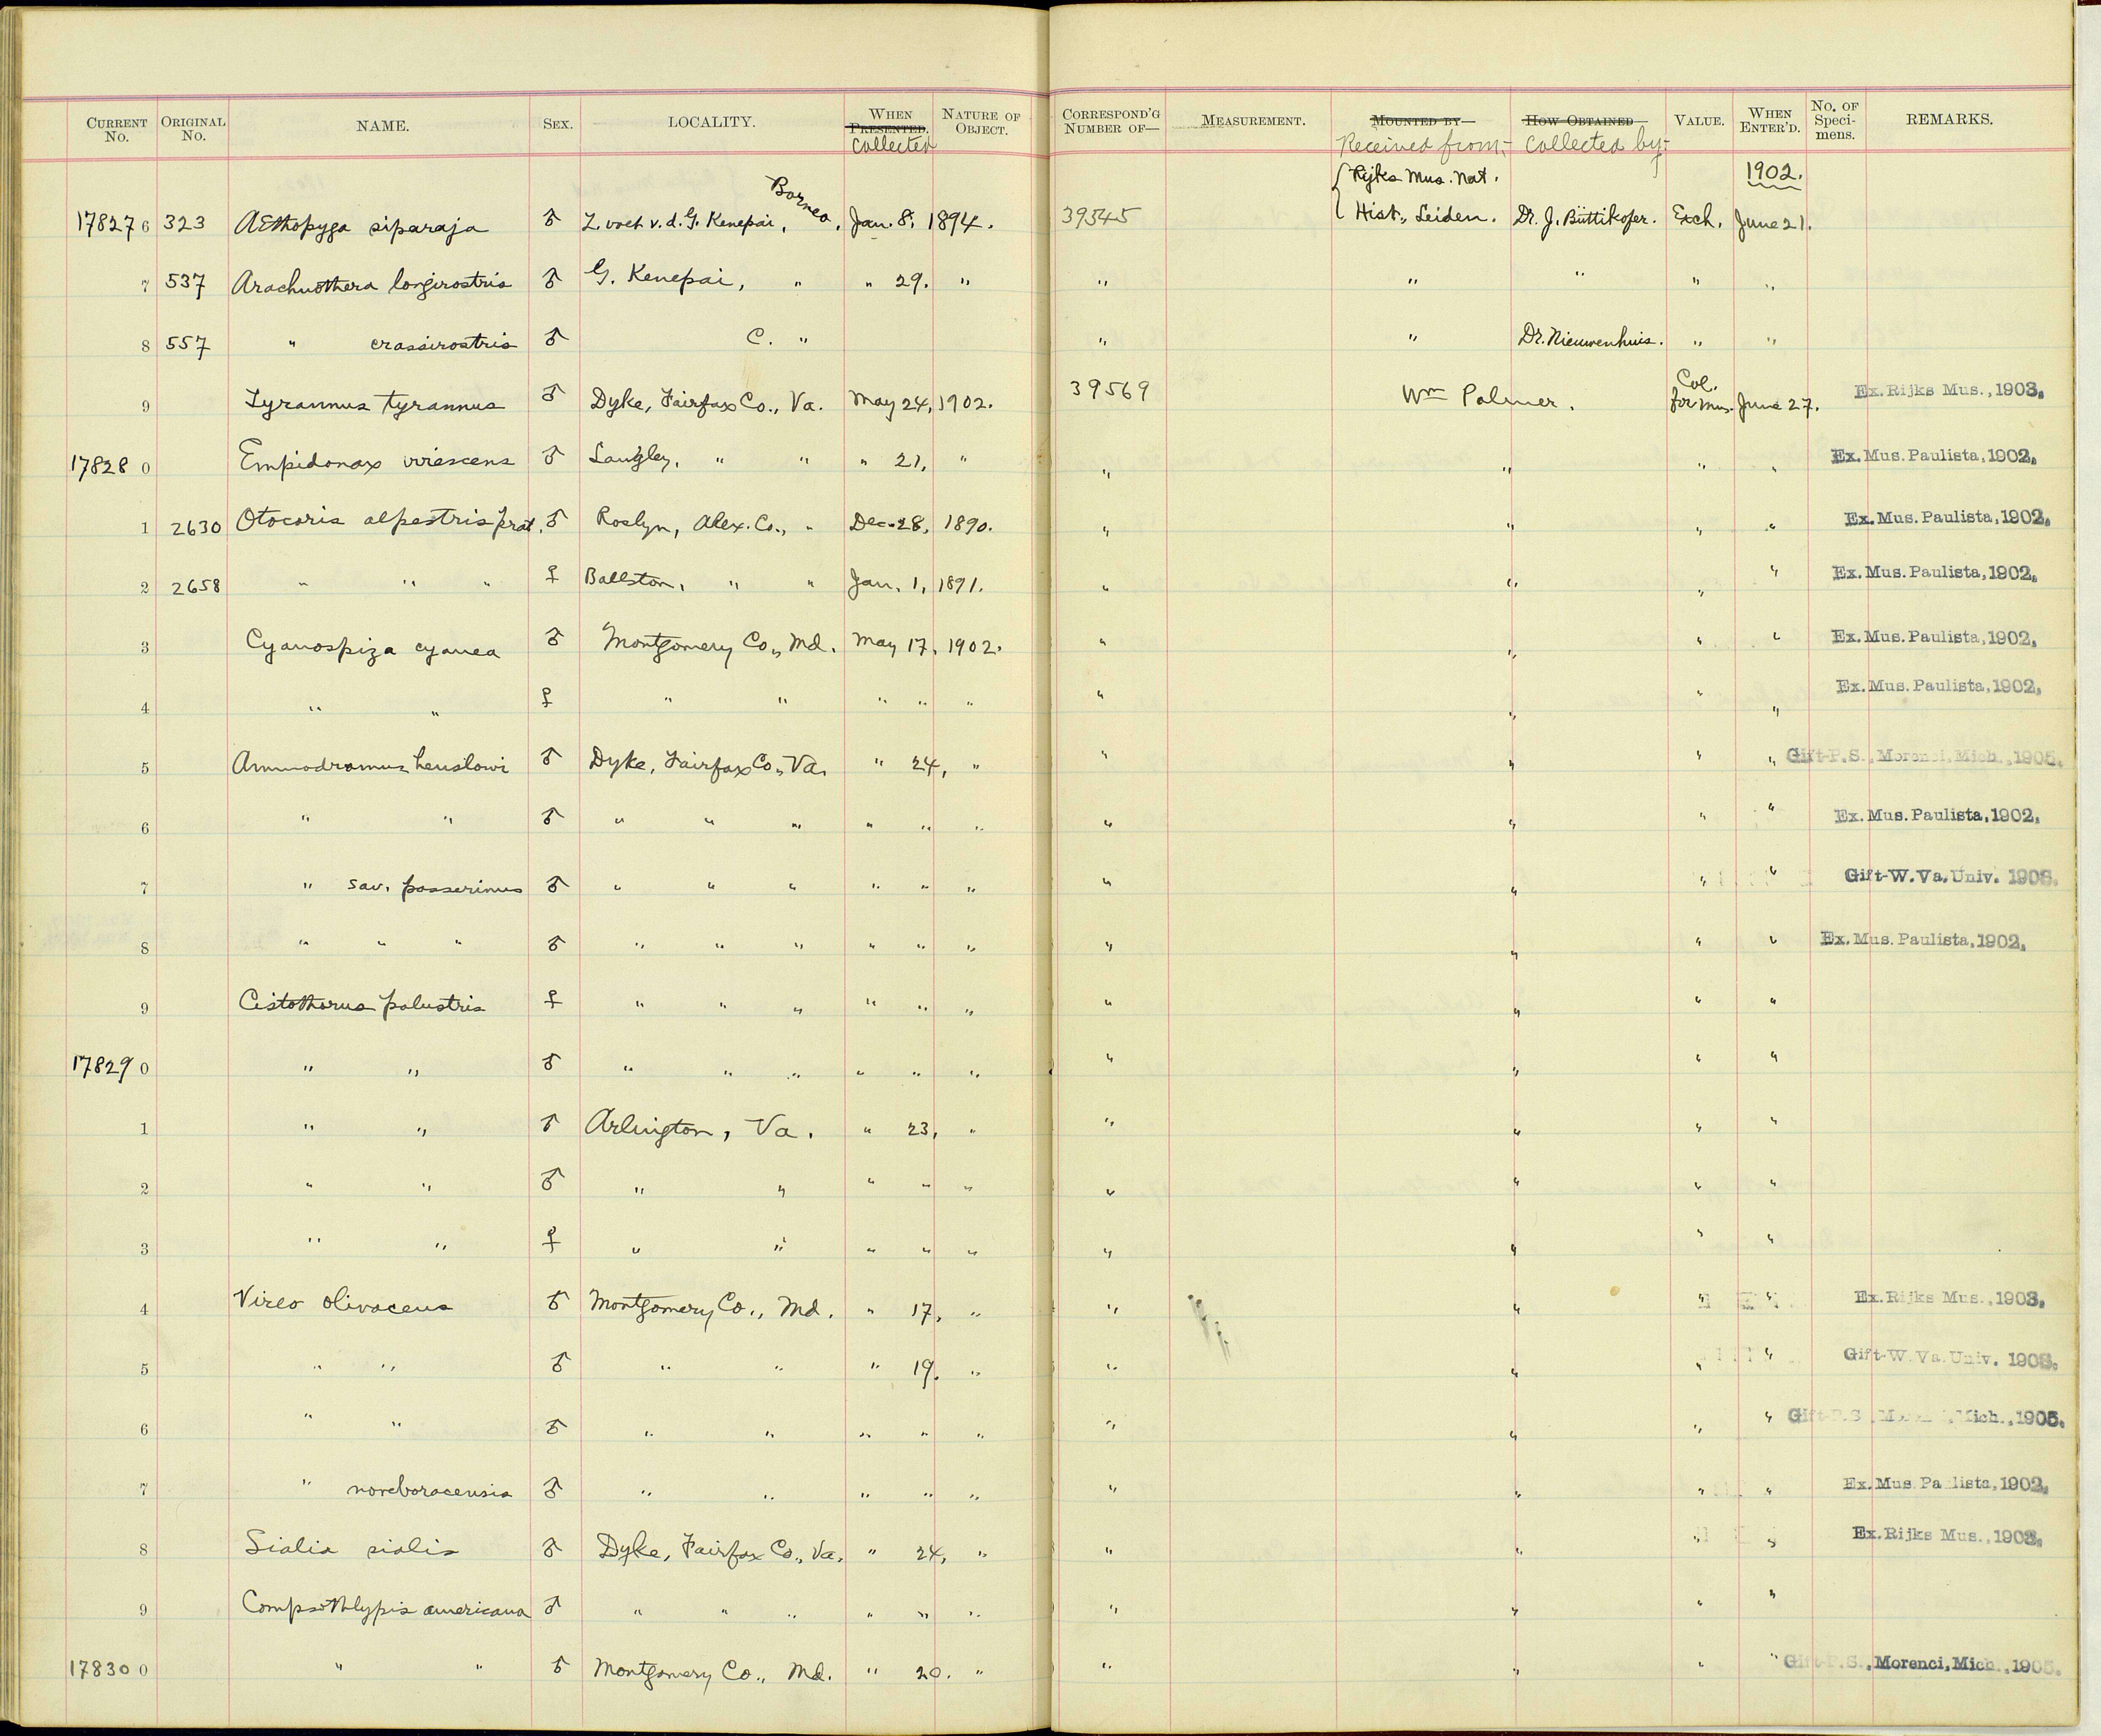 CURRENT No. ORIGINAL No. NAME. SEX. LOCALITY. WHEN PRESENTED. Collected NATURE OF OBJECT. CORRESPOND'G NUMBER OF— MEASUREMENT. MOUNTED BY— Received from:- HOW OBTAINED— Collected by:- VALUE. WHEN ENTER'D. No. OF Specimens. REMARKS.
Borneo Rijks Mus. Nat. 1902.
178276 323 AEthopyga siparaja ♂ v. d. G. Kenepai, , Jan. 8, 1894. 39545 Hist., Leiden. Dr. J. Büttikofer. Exch. June 21.
7 537 Arachnothera longirostris ♂ G. Kenepai, " " 29. " " " " " "
8 557 " crassirostris ♂ C. " " " Dr. Nieuwenhuis. " "
9 Tyrannus tyrannus ♂ Dyke, Fairfax Co., Va. May 24, 1902. 39569 Wm Palmer. Col. for Mus. June 27. Ex. Rijks Mus., 1903.
178280 Empidonax virescens ♂ Langley, " " " 21, " " " " " Ex. Mus. Paulista, 1902.
1 2630 Otocoris alpestris prat. ♂ Roslyn, Alex. Co., " Dec. 28, 1890. " " " " Ex. Mus. Paulista, 1902.
2 2658 " " " ♀ Ballston, " " Jan. 1, 1891. " " " " Ex. Mus. Paulista, 1902.
3 Cyanospiza cyanea ♂ Montgomery Co., Md. May 17, 1902. " " " " Ex. Mus. Paulista, 1902.
4 " " ♀ " " " " " " " " " Ex. Mus. Paulista, 1902.
5 Ammodramus henslowi ♂ Dyke, Fairfax Co., Va. " 24, " " " " " Gift-P.S., Morenci, Mich., 1905.
6 " " ♂ " " " " " " " " " " Ex. Mus. Paulista, 1902.
7 " sav. passerinus ♂ " " " " " " " " " " Gift-W. Va. Univ. 1908.
8 " " " ♂ " " " " " " " " " " Ex. Mus. Paulista, 1902.
9 Cistothorus palustris ♀ " " " " " " " " " "
178290 " " ♂ " " " " " " " " " "
1 " " ♂ Arlington, Va. " 23, " " " " "
2 " " ♂ " " " " " " " " "
3 " " ♀ " " " " " " " " "
4 Vireo olivaceus ♂ Montgomery Co., Md. " 17, " " " " " Ex. Rijks Mus., 1903.
5 " " ♂ " " " 19. " " " " " Gift-W. Va. Univ. 1908.
6 " " ♂ " " " " " " " " " Gift-P.S., Mich., 1905.
7 " noveboracensis ♂ " " " " " " " " " Ex. Mus. Paulista, 1902.
8 Sialia sialis ♂ Dyke, Fairfax Co., Va. " 24, " " " " " Ex. Rijks Mus., 1903.
9 Compsothlypis americana ♂ " " " " " " " " " "
178300 " " ♂ Montgomery Co., Md. " 20. " " " " " Gift-P.S., Morenci, Mich., 1905.